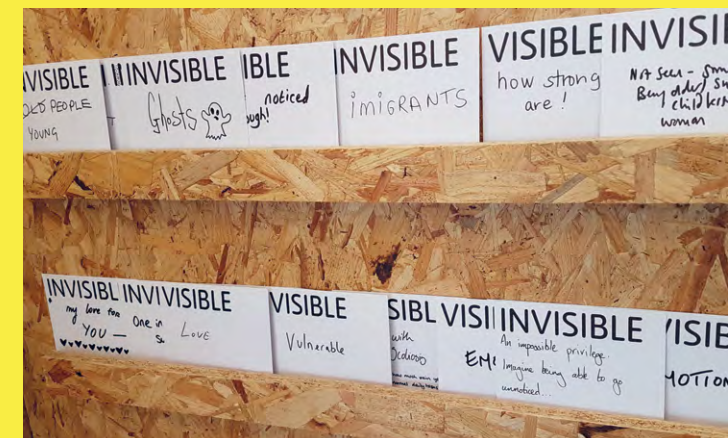 VISIBLE
OLD PEOPLE
YOUNG
INVISIBLE
Ghosts
IBLE
noticed
ough!
INVISIBLE
iMiGRANTS
VISIBLE
how strong
are !
INVISI
Not seen -
Being older
child
woman
INVISIBL
my love for
YOU —
INVI
One in
VISIBLE
LOVE
VISIBLE
Vulnerable
SIBL
with
VISI
EM
INVISIBLE
An impossible privilege.
Imagine being able to go
unnoticed...
/ISIB
MOTION